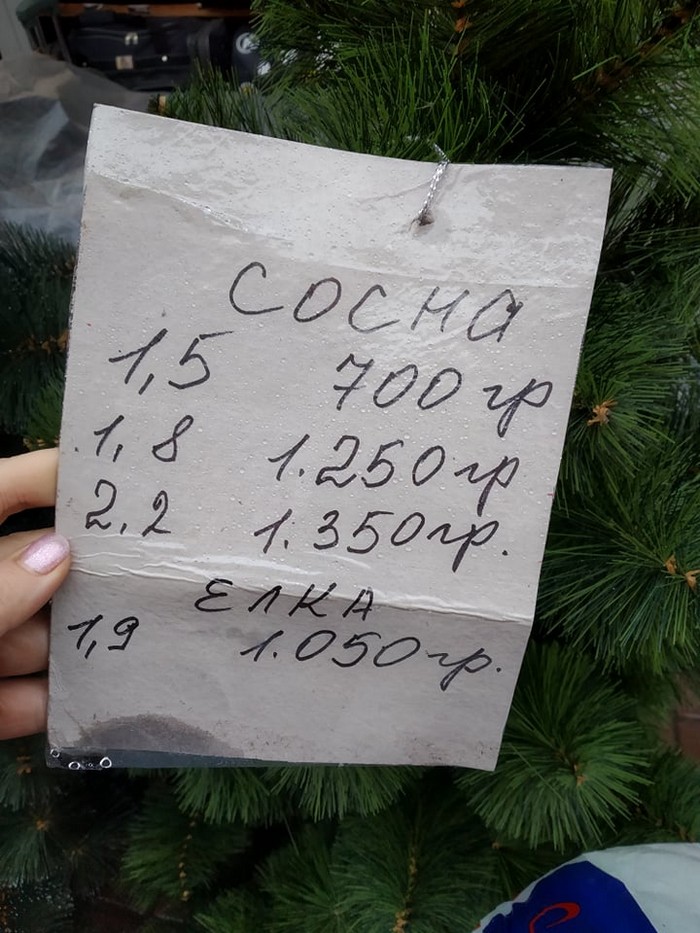 СОСНА
1,5 700 гр
1,8 1.250 гр
2,2 1.350 гр.
ЕЛКА
1,9 1.050 гр.